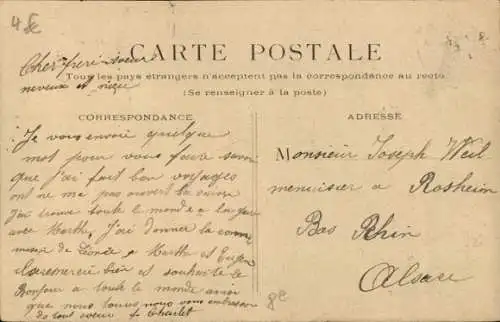 4 5c
Cher frere soeur
neveux et niece
CARTE POSTALE
Tous les pays étrangers n'acceptent pas la correspondance au recto
(Se renseigner à la poste)
CORRESPONDANCE
Je vous envoie quelque
mot pour vous faire savoir
que j'ai fait bon voyages
ont ne ma pas ouvert la
J'ai trouve toute le monde a la gare
avec Marthe. J'ai donner la
de a Marthe et
bien et souhaite le
Bonjour a toute le monde ainsi
que nous tous nous vous embrassons
de tout coeur
ADRESSE
Monsieur Joseph Weil
menuisier a Rosheim
Bas Rhin
Alsace
8e